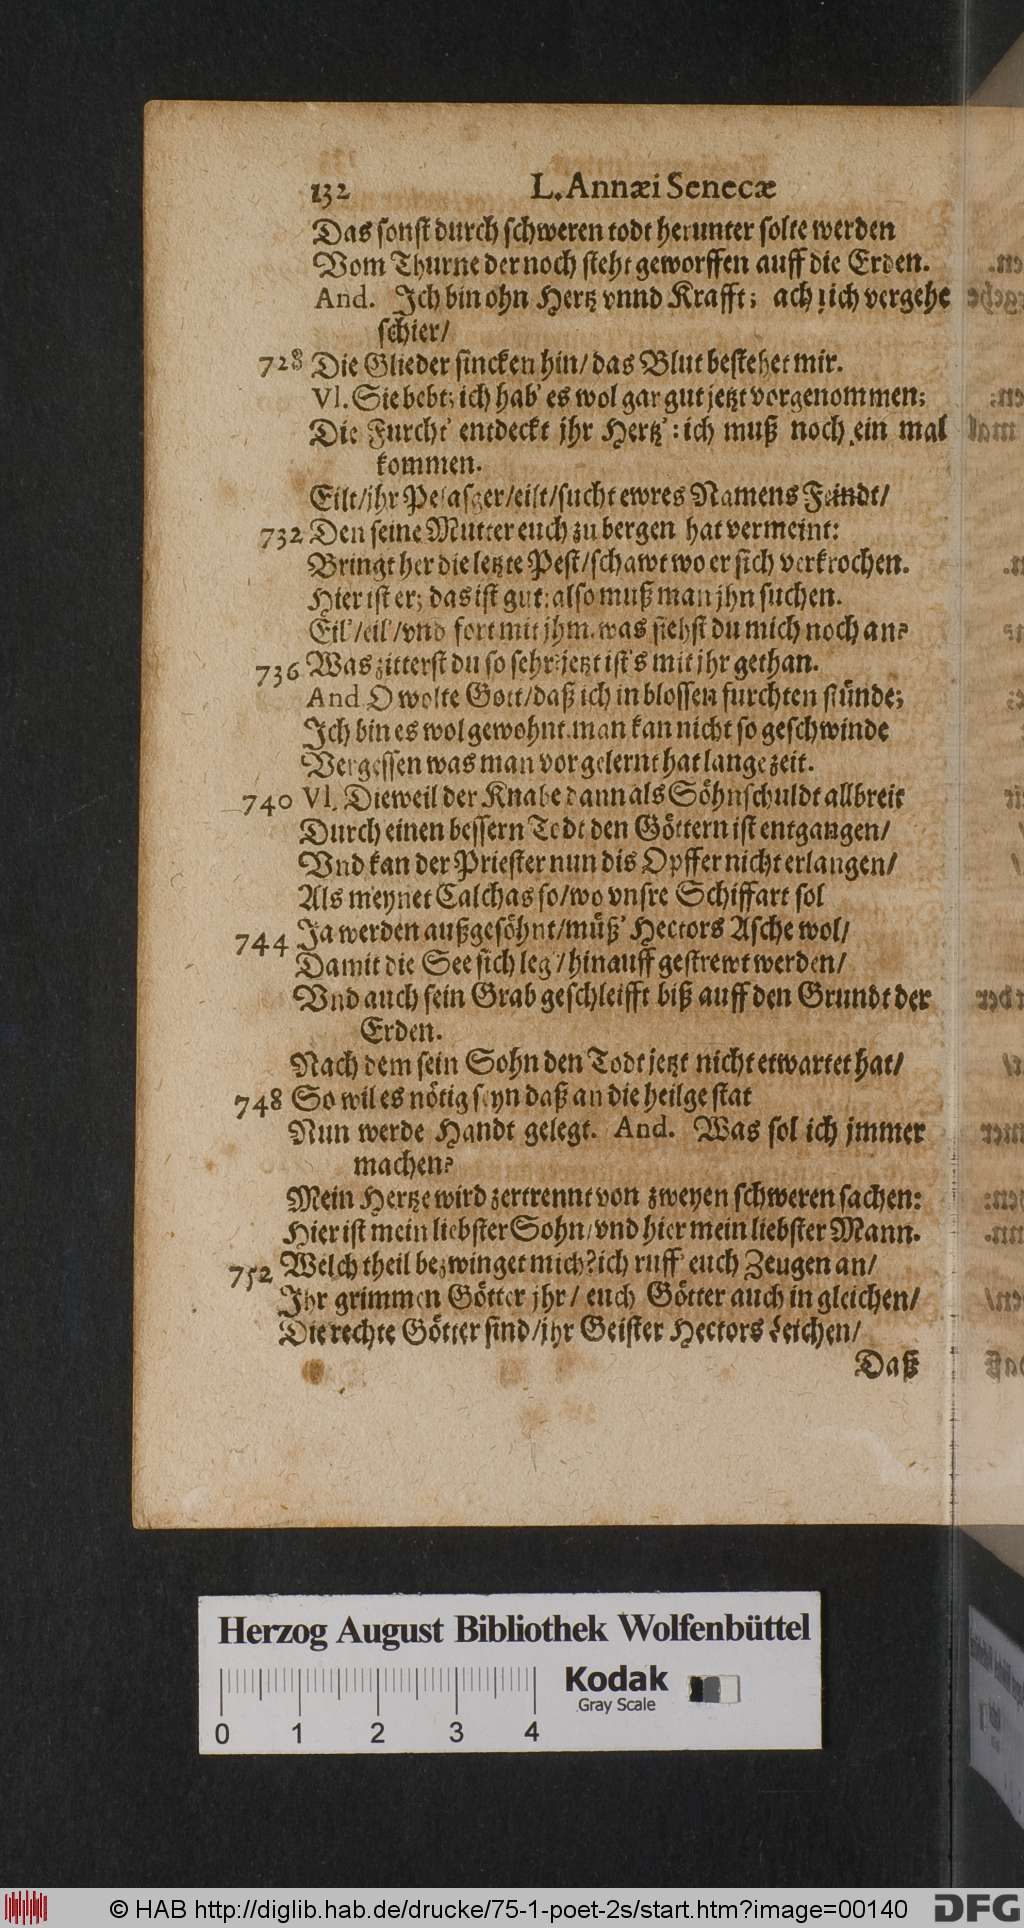 132 L. Annæi Senecæ
Das sonst durch schweren todt herunter solte werden
Vom Thurne der noch steht geworffen auff die Erden.
And. Ich bin ohn Hertz vnnd Krafft; ach! ich vergehe
schier/
728 Die Glieder sincken hin/ das Blut bestehet mir.
Vl. Sie bebt; ich hab' es wol gar gut jetzt vorgenommen;
Die Furcht' entdeckt jhr Hertz': ich muß noch ein mal
kommen.
Eilt/ jhr Pelasger/ eilt/ sucht ewres Namens Feindt/
732 Den seine Mutter euch zu bergen hat vermeint:
Bringt her die letzte Pest/ schawt wo er sich verkrochen.
Hier ist er; das ist gut: also muß man jhn suchen.
Eil'/ eil'/ vnd fort mit jhm. was siehst du mich noch an?
736 Was zitterst du so sehr? jetzt ist's mit jhr gethan.
And. O wolte Gott/ daß ich in blossen furchten stünde;
Ich bin es wol gewohnt. man kan nicht so geschwinde
Vergessen was man vor gelernt hat lange zeit.
740 Vl. Dieweil der Knabe dann als Söhnschuldt allbreit
Durch einen bessern Todt den Göttern ist entgangen/
Vnd kan der Priester nun dis Opffer nicht erlangen/
Als meynet Calchas so/ wo vnsre Schiffart sol
744 Ja werden außgesöhnt/ müß' Hectors Asche wol/
Damit die See sich leg'/ hinauff gestrewt werden/
Vnd auch sein Grab geschleifft biß auff den Grundt der
Erden.
Nach dem sein Sohn den Todt jetzt nicht etwartet hat/
748 So wil es nötig seyn daß an die heilge stat
Nun werde Handt gelegt. And. Was sol ich jmmer
machen?
Mein Hertze wird zertrennt von zweyen schweren sachen:
Hier ist mein liebster Sohn/ vnd hier mein liebster Mann.
752 Welch theil bezwinget mich? ich ruff' euch Zeugen an/
Ihr grimmen Götter jhr/ euch Götter auch in gleichen/
Die rechte Götter sind/ jhr Geister Hectors Leichen/
Daß
Herzog August Bibliothek Wolfenbüttel
Kodak
Gray Scale
0 1 2 3 4
© HAB http://diglib.hab.de/drucke/75-1-poet-2s/start.htm?image=00140 DFG